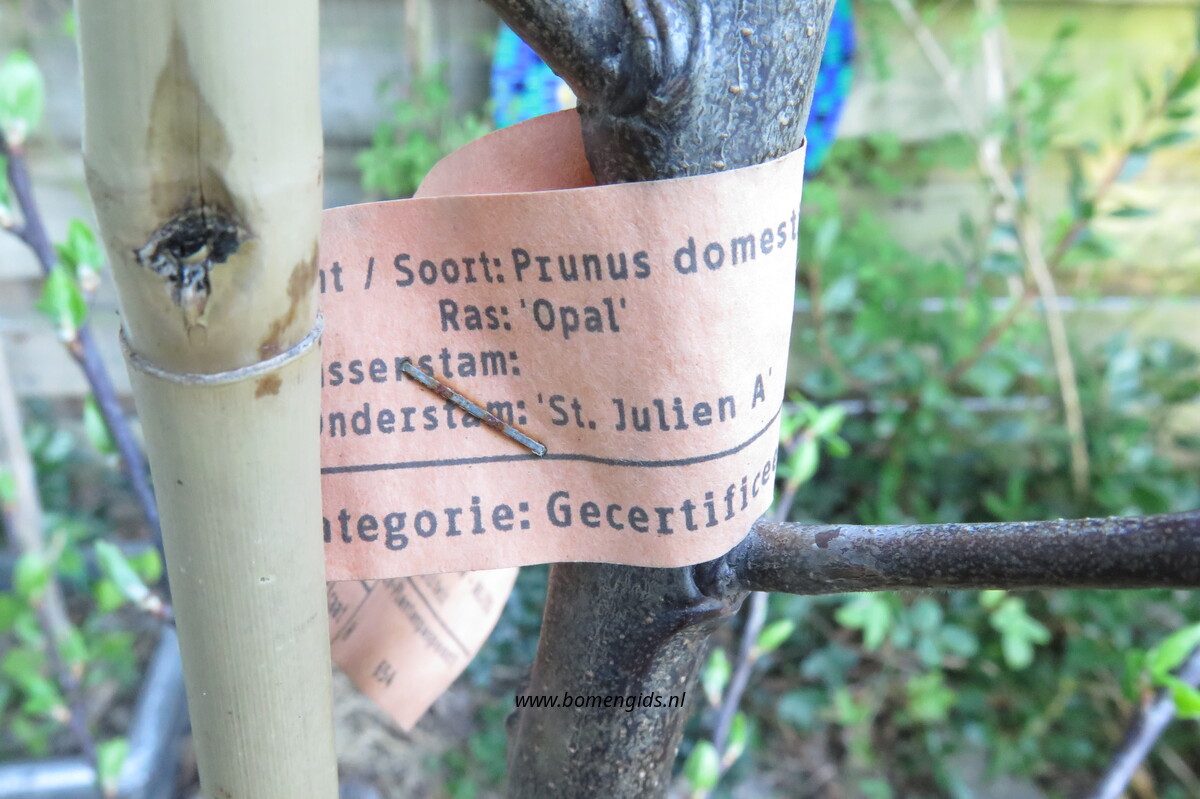 nt / Soort: Prunus domest
Ras: 'Opal'
ssenstam:
onderstam: 'St. Julien A'
ategorie: Gecertificee
www.bomengids.nl